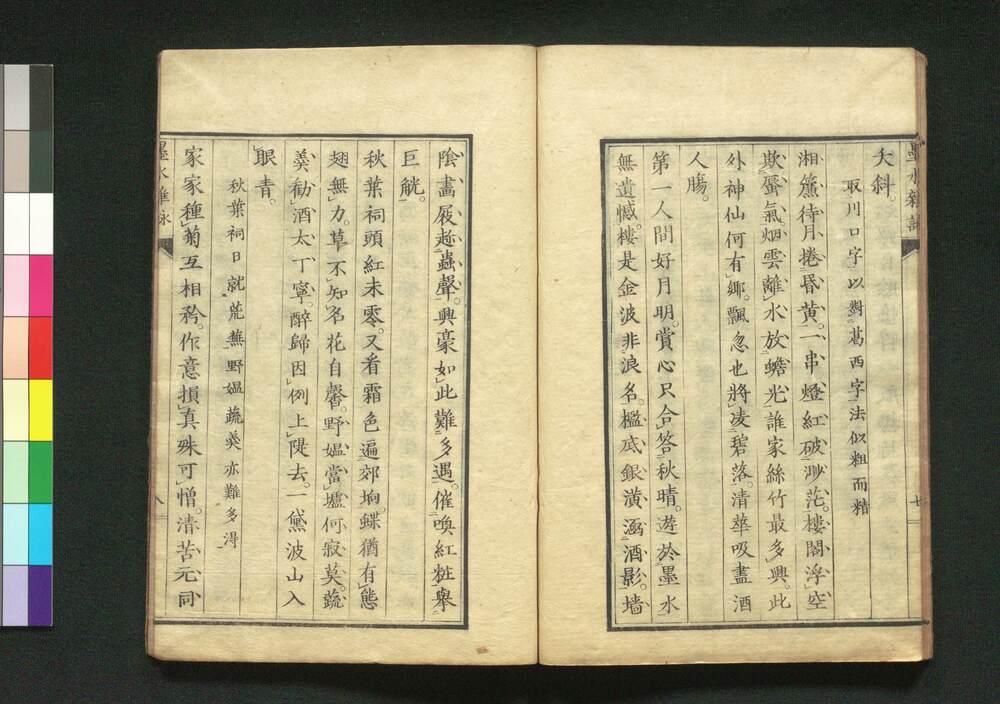 墨水雜詠
大斜。
取川口字以對葛西字法似粗而精
湘簾待月捲昏黃。一串燈紅破渺茫。樓閣浮空
欺蜃氣。烟雲離水放蟾光。誰家絲竹最多興。此
外神仙何有鄉。飄忽也將凌碧落。清華吸盡酒
人膓。
第一人間好月明。賞心只合答秋晴。遊於墨水
無遺憾。樓是金波非浪名。檻底銀潢涵酒影。墻
七
陰畵屐趁蟲聲。興豪如此難多遇。催喚紅粧舉
巨觥。
秋葉祠頭紅未零。又看霜色遍郊坰。蝶猶有態
翅無力。草不知名花自馨。野媼當壚何寂莫。蔬
羮勸酒太丁寧。醉歸因例上隄去。一黛波山入
眼青。
秋葉祠日就荒蕪野媼蔬羮亦難多得
家家種菊互相矜。作意損真殊可憎。清苦元同
墨水雜詠
八